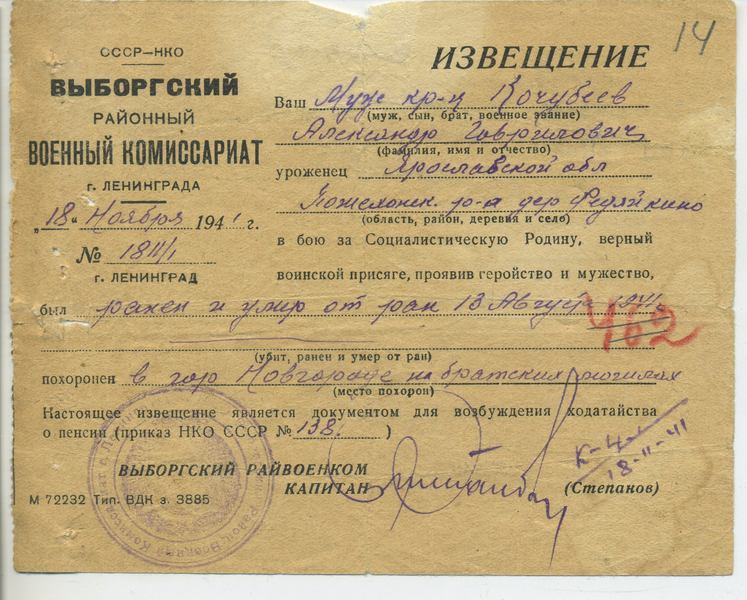 14
СССР–НКО
ВЫБОРГСКИЙ
РАЙОННЫЙ
ВОЕННЫЙ КОМИССАРИАТ
г. ЛЕНИНГРАДА
„18" Ноября 1941 г.
№ 1811/1
г. ЛЕНИНГРАД
ИЗВЕЩЕНИЕ
Ваш Муж кр-ц Кочубеев
(муж, сын, брат, военное звание)
Александр Гаврилович
(фамилия, имя и отчество)
уроженец Ярославской обл
Пошехонск. р-а дер Федяйкино
(область, район, деревня и село)
в бою за Социалистическую Родину, верный
воинской присяге, проявив геройство и мужество,
был ранен и умер от ран 13 Август 1941
462
(убит, ранен и умер от ран)
похоронен в гор Новгороде на братских могилах
(место похорон)
Настоящее извещение является документом для возбуждения ходатайства
о пенсии (приказ НКО СССР № 138. )
ВЫБОРГСКИЙ РАЙВОЕНКОМ
КАПИТАН (Степанов)
18-11-41
М 72232 Тип. ВДК з. 3885